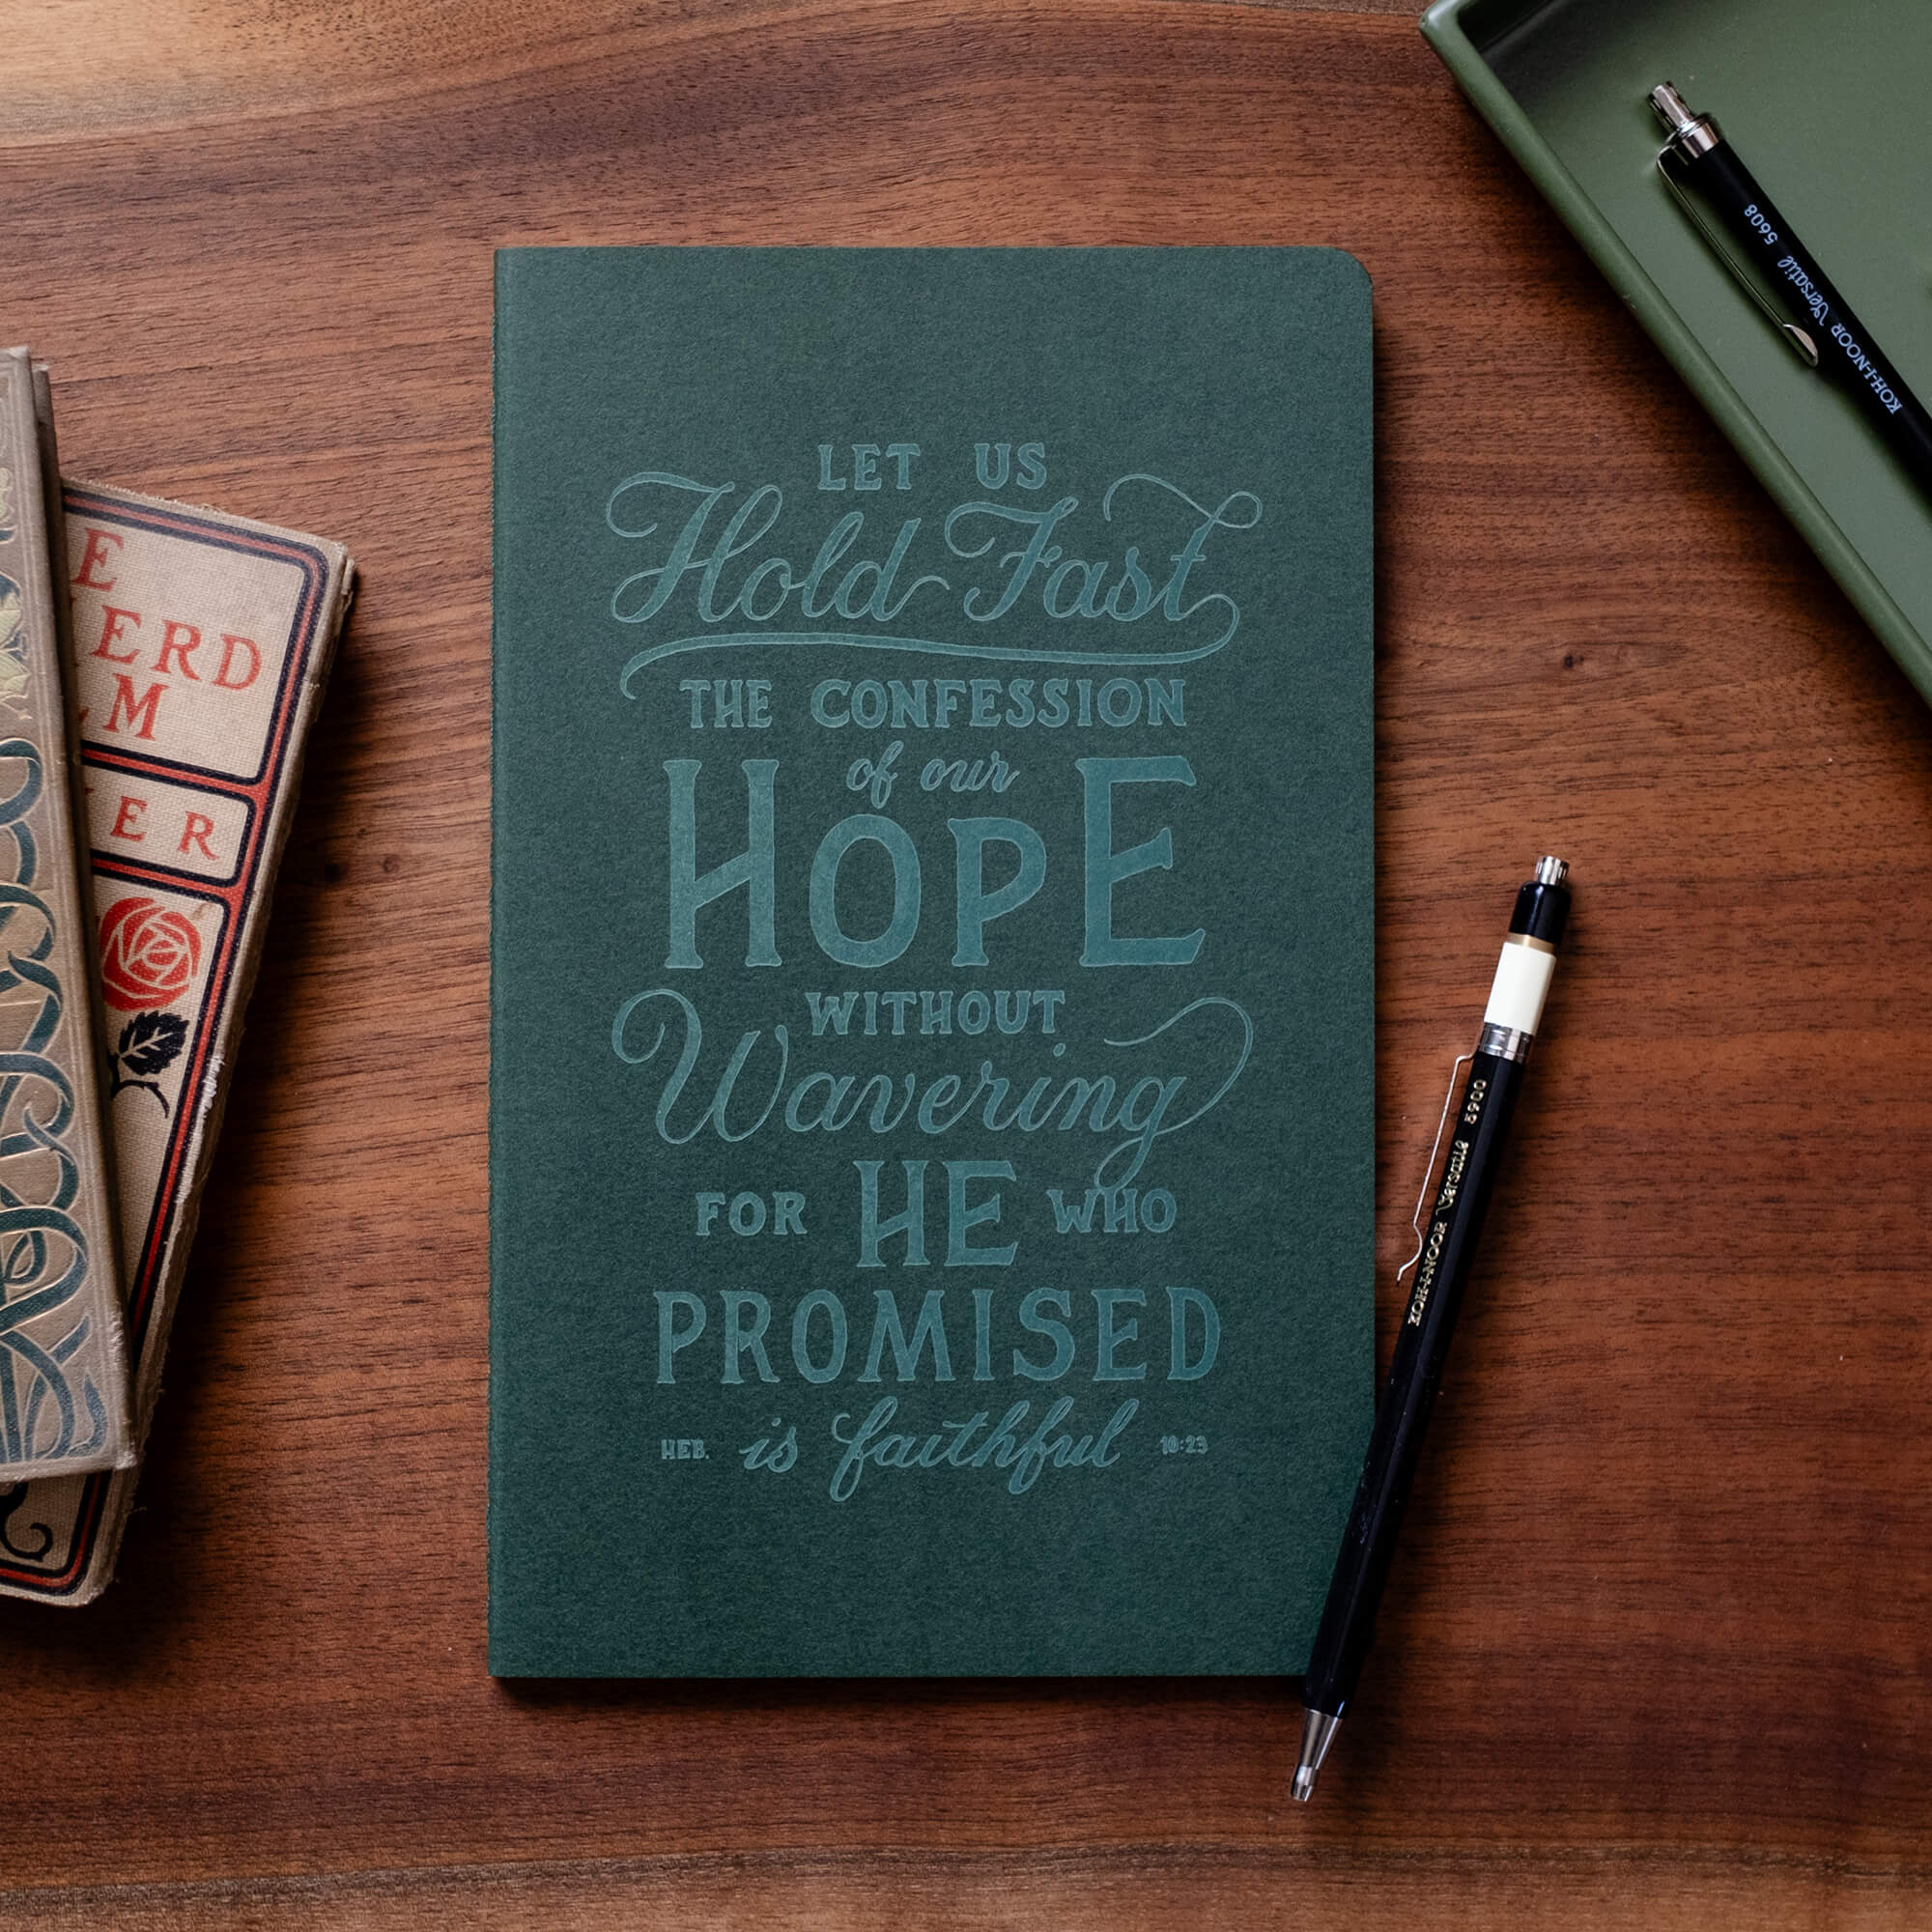 LET US
Hold Fast
THE CONFESSION
of our
HOPE
WITHOUT
Wavering
FOR HE WHO
PROMISED
is faithful
HEB. 10:23
E
ERD
M
ER
KOH-I-NOOR Versatil 5608
KOH-I-NOOR Versatil 5900